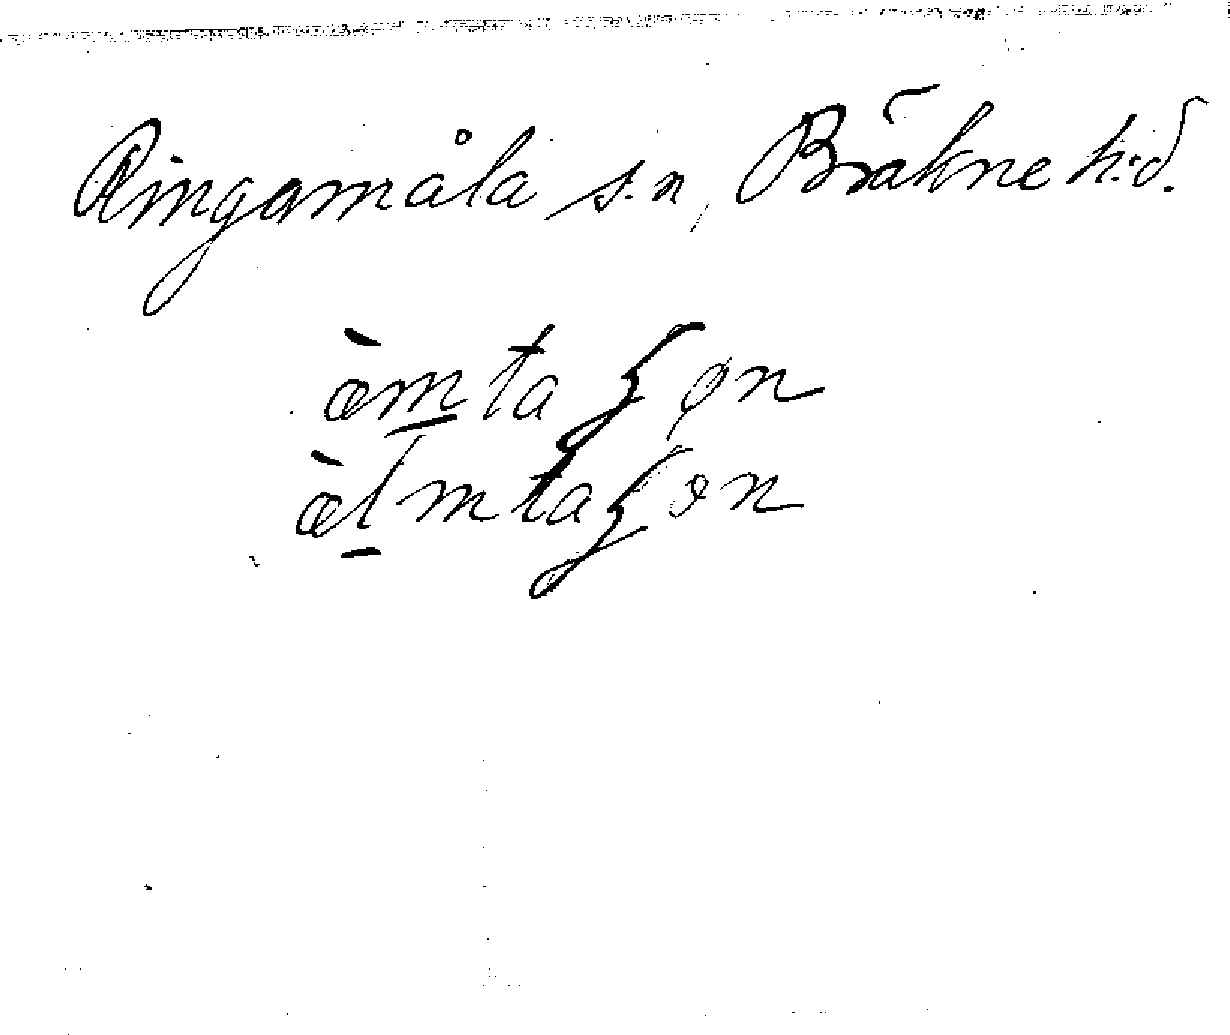 Ringamåla s.n, Bräkne h:d.
æ̀m̲taʒøn
æ̀l̲mtaʒøn